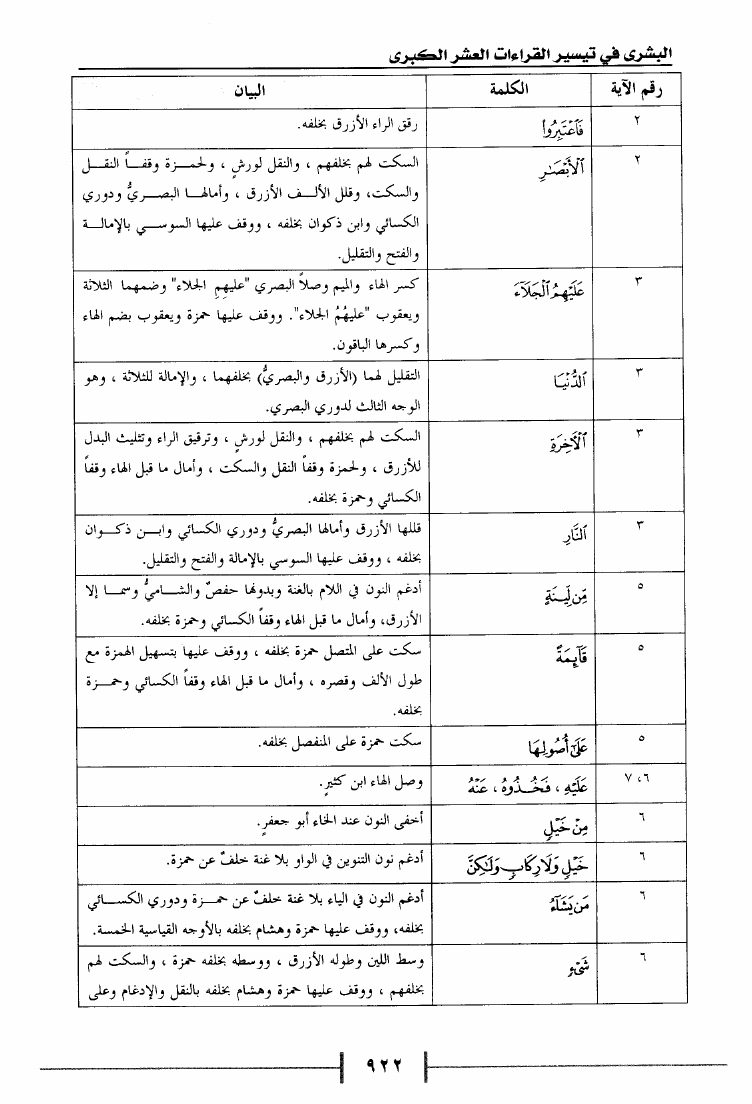 البشرى في تيسير القراءات العشر الكبرى
رقم الآية الكلمة البيان
٢ فَٱعۡتَبِرُوا۟ رقق الراء الأزرق بخلفه.
٢ ٱلۡأَبۡصَٰرِ السكت لهم بخلفهم ، والنقل لورشٍ ، ولحمزة وقفاً النقل
والسكت، وقلل الألف الأزرق ، وأمالها البصريُّ ودوري
الكسائي وابن ذكوان بخلفه ، ووقف عليها السوسي بالإمالة
والفتح والتقليل.
٣ عَلَيۡهِمُ ٱلۡجَلَآءَ كسر الهاء والميم وصلاً البصري "عليهِمِ الجلاء" وضمهما الثلاثة
ويعقوب "عليهُمُ الجلاء". ووقف عليها حمزة ويعقوب بضم الهاء
وكسرها الباقون.
٣ ٱلدُّنۡيَا التقليل لهما (الأزرق والبصريُّ) بخلفهما ، والإمالة للثلاثة ، وهو
الوجه الثالث لدوري البصري.
٣ ٱلۡأٓخِرَةِ السكت لهم بخلفهم ، والنقل لورشٍ ، وترقيق الراء وتثليث البدل
للأزرق ، ولحمزة وقفاً النقل والسكت ، وأمال ما قبل الهاء وقفاً
الكسائي وحمزة بخلفه.
٣ ٱلنَّارِ قللها الأزرق وأمالها البصريُّ ودوري الكسائي وابن ذكوان
بخلفه ، ووقف عليها السوسي بالإمالة والفتح والتقليل.
٥ مِّن لِّينَةٍ أدغم النون في اللام بالغنة وبدونها حفصٌ والشاميُّ وسما إلا
الأزرق، وأمال ما قبل الهاء وقفاً الكسائي وحمزة بخلفه.
٥ قَآئِمَةً سكت على المتصل حمزة بخلفه ، ووقف عليها بتسهيل الهمزة مع
طول الألف وقصره ، وأمال ما قبل الهاء وقفاً الكسائي وحمزة
بخلفه.
٥ عَلَىٰٓ أُصُولِهَا سكت حمزة على المنفصل بخلفه.
٦، ٧ عَلَيۡهِ ، فَخُذُوهُ ، عَنۡهُ وصل الهاء ابن كثيرٍ.
٦ مِنۡ خَيۡلٍ أخفى النون عند الخاء أبو جعفرٍ.
٦ خَيۡلٍ وَلَا رِكَابٍ وَلَٰكِنَّ أدغم نون التنوين في الواو بلا غنة خلفٌ عن حمزة.
٦ مَن يَشَآءُ أدغم النون في الياء بلا غنة خلفٌ عن حمزة ودوري الكسائي
بخلفه، ووقف عليها حمزة وهشام بخلفه بالأوجه القياسية الخمسة.
٦ شَيۡءٍ وسط اللين وطوله الأزرق ، ووسطه بخلفه حمزة ، والسكت لهم
بخلفهم ، ووقف عليها حمزة وهشام بخلفه بالنقل والإدغام وعلى
٩٢٢